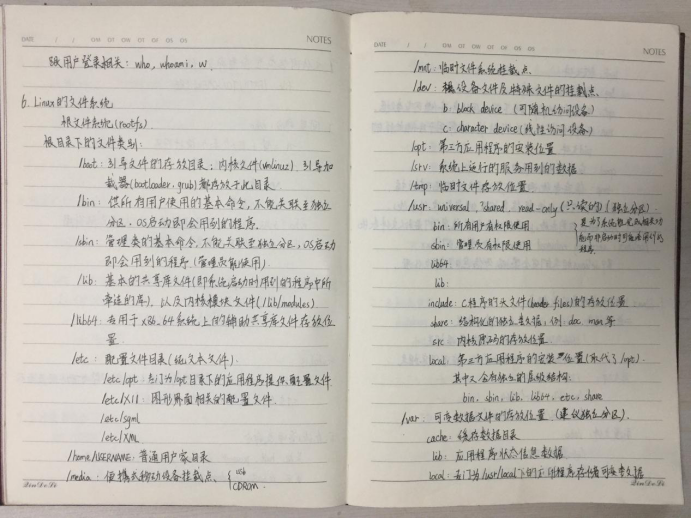 DATE / /
NOTES
跟用户登录相关：who, whoami, w.
6. Linux的文件系统
根文件系统(rootfs)
根目录下的文件类别：
/boot：引导文件的存放目录；内核文件(vmlinuz)、引导加
载器(bootloader, grub)都存放于此目录.
/bin：供所有用户使用的基本命令，不能关联至独立
分区，OS启动即会用到的程序.
/sbin：管理类的基本命令，不能关联至独立分区，OS启动
即会用到的程序.(管理员能使用)
/lib：基本的共享库文件(即系统启动时用到的程序中所
牵连的库)，以及内核模块文件(/lib/modules)
/lib64：专用于x86_64系统上的辅助共享库文件存放位
置.
/etc：配置文件目录(纯文本文件).
/etc/opt：专门为/opt目录下的应用程序提供配置文件
/etc/X11：图形界面相关的配置文件.
/etc/sgml
/etc/XML
/home/USERNAME：普通用户家目录
/media：便携式移动设备挂载点. { usb
CDROM.
DATE / /
NOTES
/mnt：临时文件系统挂载点.
/dev：设备文件及特殊文件的挂载点.
b：block device (可随机访问设备)
c：character device (线性访问设备)
/opt：第三方应用程序的安装位置
/srv：系统上运行的服务用到的数据
/tmp：临时文件存放位置
/usr：universal, ?shared, read-only (只读的) (独立分区)
bin：所有用户有权限使用
sbin：管理员有权限使用
lib64
lib：
include：C程序的头文件(header files)的存放位置
share：结构化的独立类数据，例：doc, man等
src：内核源码的存放位置.
local：第三方应用程序的安装位置(取代了/opt).
其中又含有独立的层级结构：
bin, sbin, lib, lib64, etc, share
/var：可变数据文件的存放位置 (建议独立分区).
cache：缓存数据目录
lib：应用程序状态信息数据
local：专门为/usr/local下的应用程序存储可变类数据